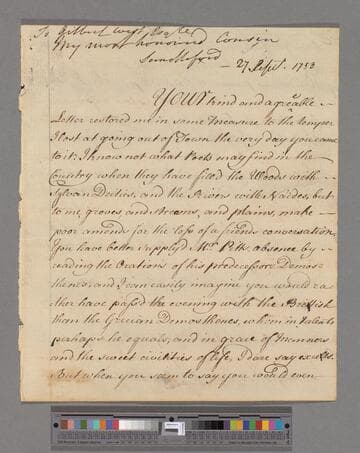 To Gilbert West Esqr
My most honour'd Cousin
Sandleford
27 Sept. 1753
YOUR kind and agreable
Letter restored me in some measure to the temper
I lost at going out of Town the very day you came
to it; I know not what Poets may find in the
Country when they have fill'd the Woods with
Sylvan Deities, and the Rivers with Naides, but
to me, groves, and streams, and plains, make
poor amends for the loss of a friends conversation
You have better supplyd Mr Pitts absence by
reading the Orations of his predecessor Demos=
thenes, and I can easily imagine you would ra=
ther have past the evening with the British
than the Grecian Demosthenes, whom in talents
perhaps he equals, and in grace of manners
and the sweet civilities of life, I dare say excells.
But when you seem to say you would even